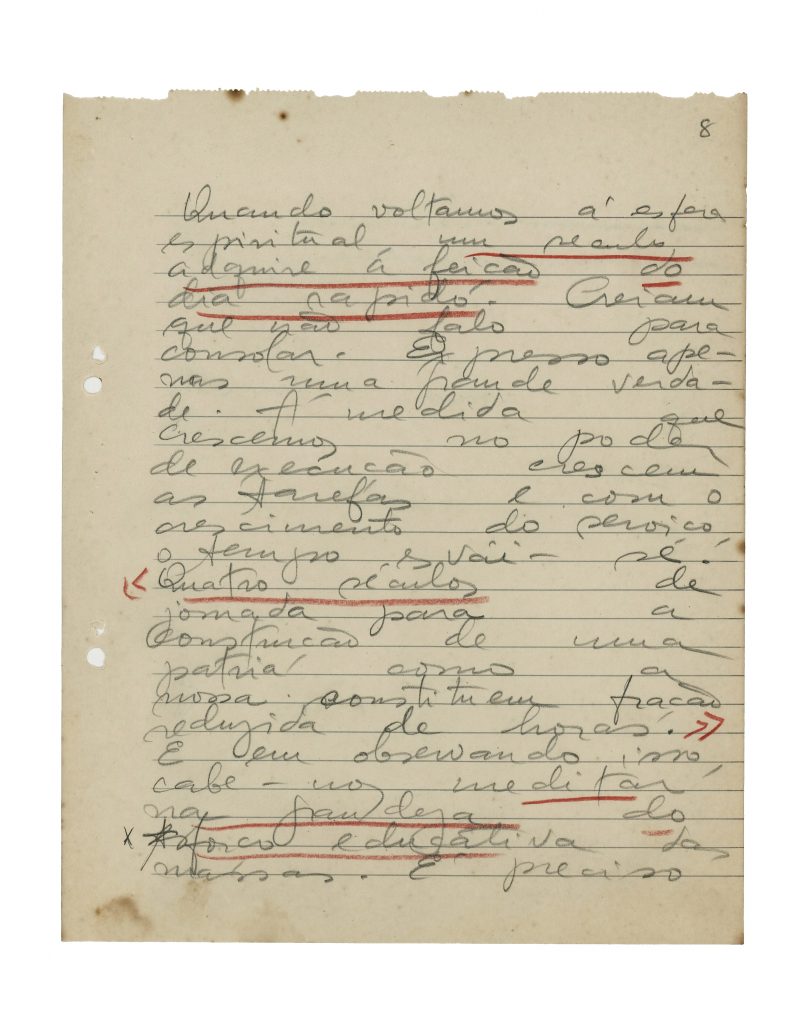 8
Quando voltamos á esfera
espiritual um seculo
adquire á feição do
dia rapido. Creiam
que não falo para
consolar. Expresso ape-
nas uma grande verda-
de. Á medida que
crescemos no poder
de execucão crescem
as tarefas e com o
crescimento do serviço
o tempo esvái-se.
« Quatro séculos de
jornada para a
construcão de uma
patria como a
nossa constituem fracão
reduzida de horas. »
E em observando isso,
cabe-nos meditar
na grandeza do
x esforço educativa das
massas. É preciso